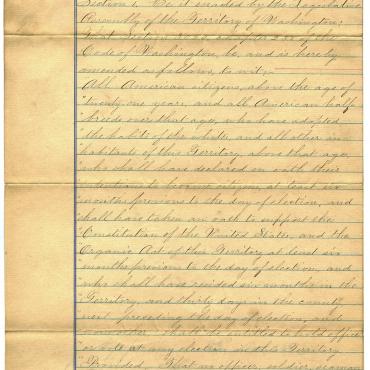 Section 1. Be it enacted by the Legislative
Assembly of the Territory of Washington:
That Section 3050 chapter of the
Code of Washington, be, and is hereby
amended as follows, to wit,
All American citizens, above the age of
"twenty-one years, and all American half
"breeds over that age, who have adopted
"the habits of the whites, and all other in-
"habitants of this Territory, above that age,
"who shall have declared on oath their
"intentions to become citizens, at least six
"months previous to the day of election, and
"shall have taken an oath to support the
"Constitution of the United States, and the
"Organic Act of this Territory at least six
"months previous to the day of election, and
"who shall have resided six months in the
"Territory, and thirty days in the county
"next preceding the day of election, and
"none other, shall be entitled to hold office
"or vote at any election in this Territory.
"Provided, That no officer, soldier, seaman